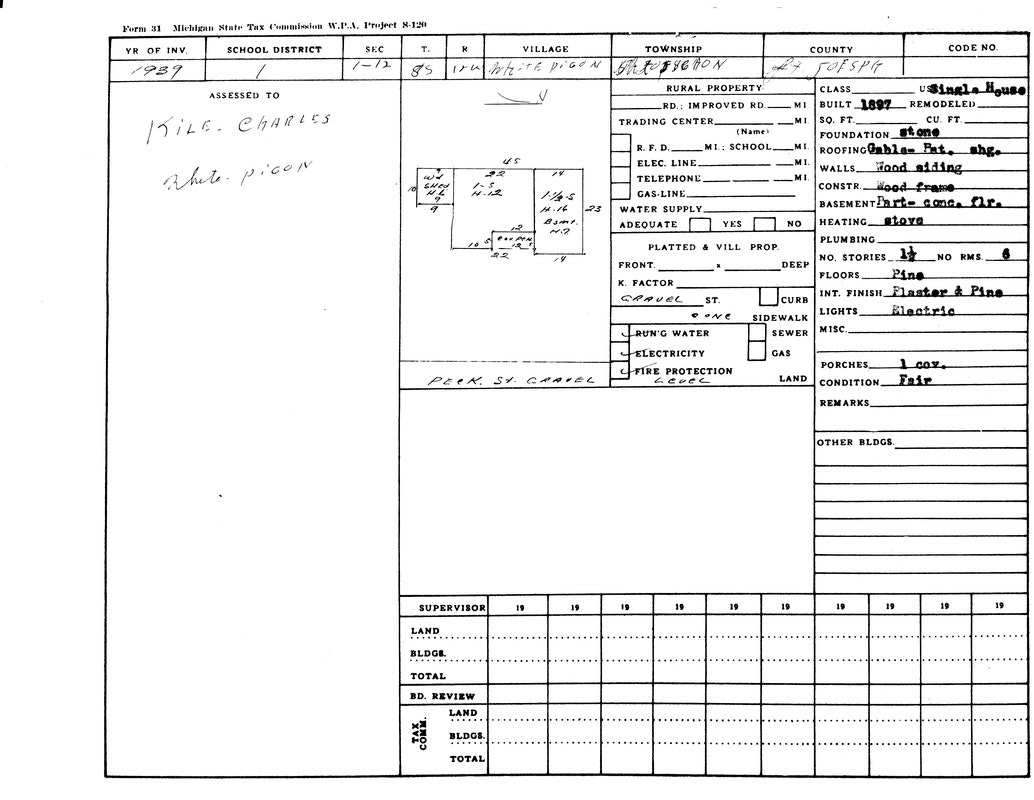 Form 31 Michigan State Tax Commission W.P.A. Project S-120
YR OF INV. SCHOOL DISTRICT SEC T. R VILLAGE TOWNSHIP COUNTY CODE NO.
1939 1 1-12 8S 12W White Pigon
ASSESSED TO
KILE. CHARLES
White. pigon
45
22 14
10 Wd SHED H.6 9 1-S H-12 1-1/2-S H-16 Bsmt. H.7 23
9
12
10 5 12
22 14
PECK. St. GRAVEL
RURAL PROPERTY
RD.; IMPROVED RD. MI.
TRADING CENTER MI.
(Name)
R. F. D. MI.; SCHOOL MI.
ELEC. LINE MI.
TELEPHONE MI.
GAS-LINE
WATER SUPPLY
ADEQUATE YES NO
PLATTED & VILL PROP.
FRONT. x DEEP
K. FACTOR
GRAVEL ST. CURB
SIDEWALK
RUN'G WATER SEWER
ELECTRICITY GAS
FIRE PROTECTION
LEVEL LAND
CLASS Single House
BUILT 1897 REMODELED
SQ. FT. CU. FT.
FOUNDATION stone
ROOFING Gable- Pat. shg.
WALLS Wood siding
CONSTR. Wood frame
BASEMENT Part- conc. flr.
HEATING stove
PLUMBING
NO. STORIES 1½ NO RMS. 6
FLOORS Pine
INT. FINISH Plaster & Pine
LIGHTS Electric
MISC.
PORCHES 1 cov.
CONDITION Fair
REMARKS
OTHER BLDGS.
SUPERVISOR 19 19 19 19 19 19 19 19 19 19
LAND
BLDGS.
TOTAL
BD. REVIEW
TAX COMM.
LAND
BLDGS.
TOTAL